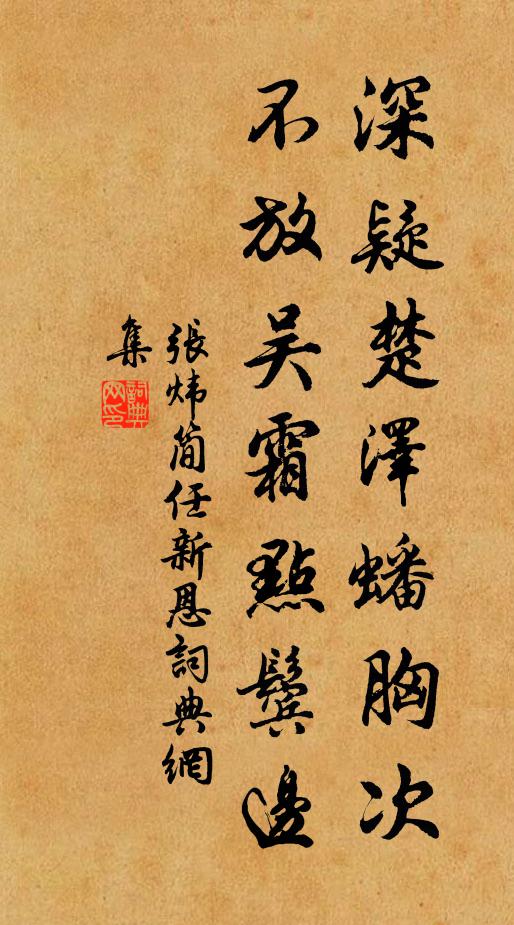 深疑楚澤蟠胸次
不放吳霜點鬢邊
張煒簡任新恩詞典網
集
詞典网印